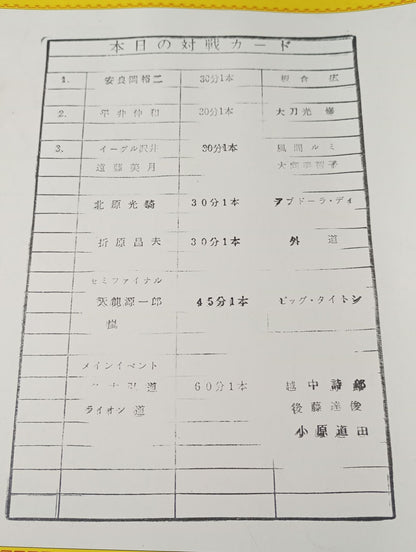 本日の対戦カード
1. 安良岡裕二 30分1本 板倉 広
2. 平井伸和 20分1本 大刀光 修
3. イーグル沢井 30分1本 風間ルミ
遠藤美月
北原光騎 30分1本 アブドーラ・ディ
折原昌夫 30分1本 外道
セミファイナル
天龍源一郎 45分1本 ビッグ・タイトン
メインイベント
弘道 60分1本 越中詩郎
ライオン 道 後藤達俊
小原道由